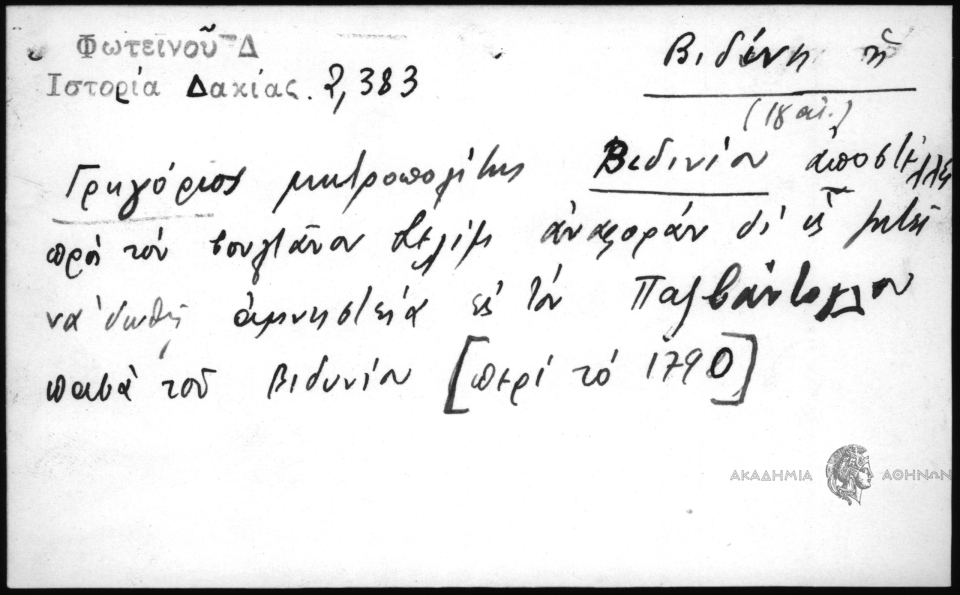 Φωτεινοῦ Δ
Ἱστορία Δακίας. 2, 383
Βιδύνη ἡ
(18 αἰ.)
Γρηγόριος μητροπολίτης Βιδινίου ἀποστέλλει
πρὸς τὸν σουλτᾶνον Σελὶμ ἀναφορὰν δι' ἧς ζητεῖ
νὰ δωθῇ ἀμνηστεία εἰς τὸν Πασβάντογλου
πασᾶ τοῦ Βιδυνίου [περὶ τὸ 1790]
ΑΚΑΔΗΜΙΑ ΑΘΗΝΩΝ